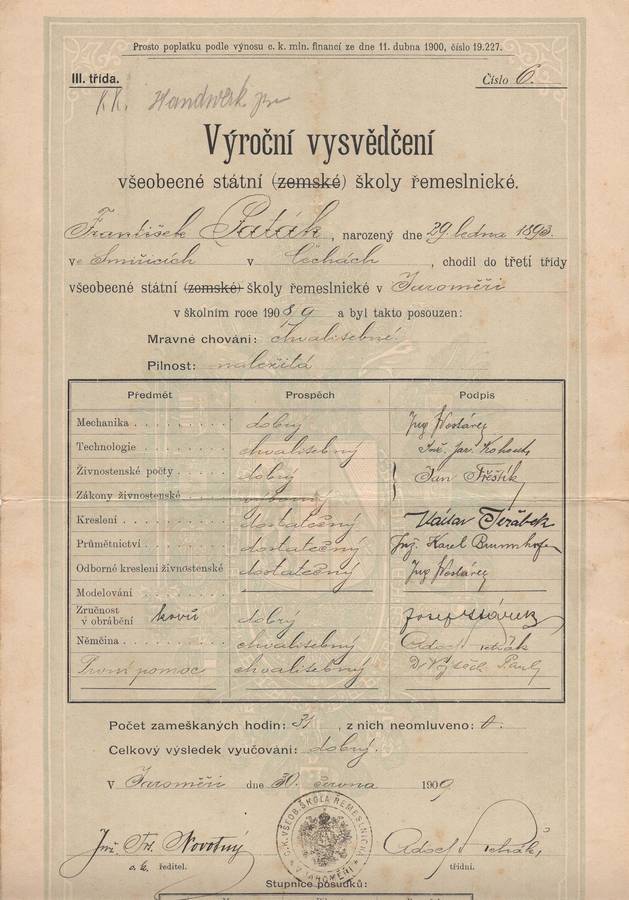 Prosto poplatku podle výnosu c. k. min. financí ze dne 11. dubna 1900, číslo 19.227.
III. třída. Číslo 6.
K.K. Handwerk
Výroční vysvědčení
všeobecné státní (zemské) školy řemeslnické.
František Paták, narozený dne 29. ledna 1893.
ve Smiřicích v Čechách, chodil do třetí třídy
všeobecné státní (zemské) školy řemeslnické v Jaroměři
v školním roce 1908/9 a byl takto posouzen:
Mravné chování: chvalitebné.
Pilnost: náležitá
Předmět Prospěch Podpis
Mechanika dobrý Ing
Technologie chvalitebný Inž. Jar. Kohout
Živnostenské počty dobrý Jan
Zákony živnostenské
Kreslení dostatečný Václav Jeřábek
Průmětnictví dostatečný Inž. Karel
Odborné kreslení živnostenské dostatečný Ing
Modelování
Zručnost v obrábění kovů dobrý Josef
Němčina chvalitebný
První pomoc chvalitebný Dr
Počet zameškaných hodin: 31, z nich neomluveno: 0.
Celkový výsledek vyučování: dobrý.
V Jaroměři dne 30. června 1909
C.K. VŠEOB. ŠKOLA ŘEMESLNICKÁ V JAROMĚŘI
Inž. Fr. Novotný
ředitel. třídní.
Stupnice posudků: